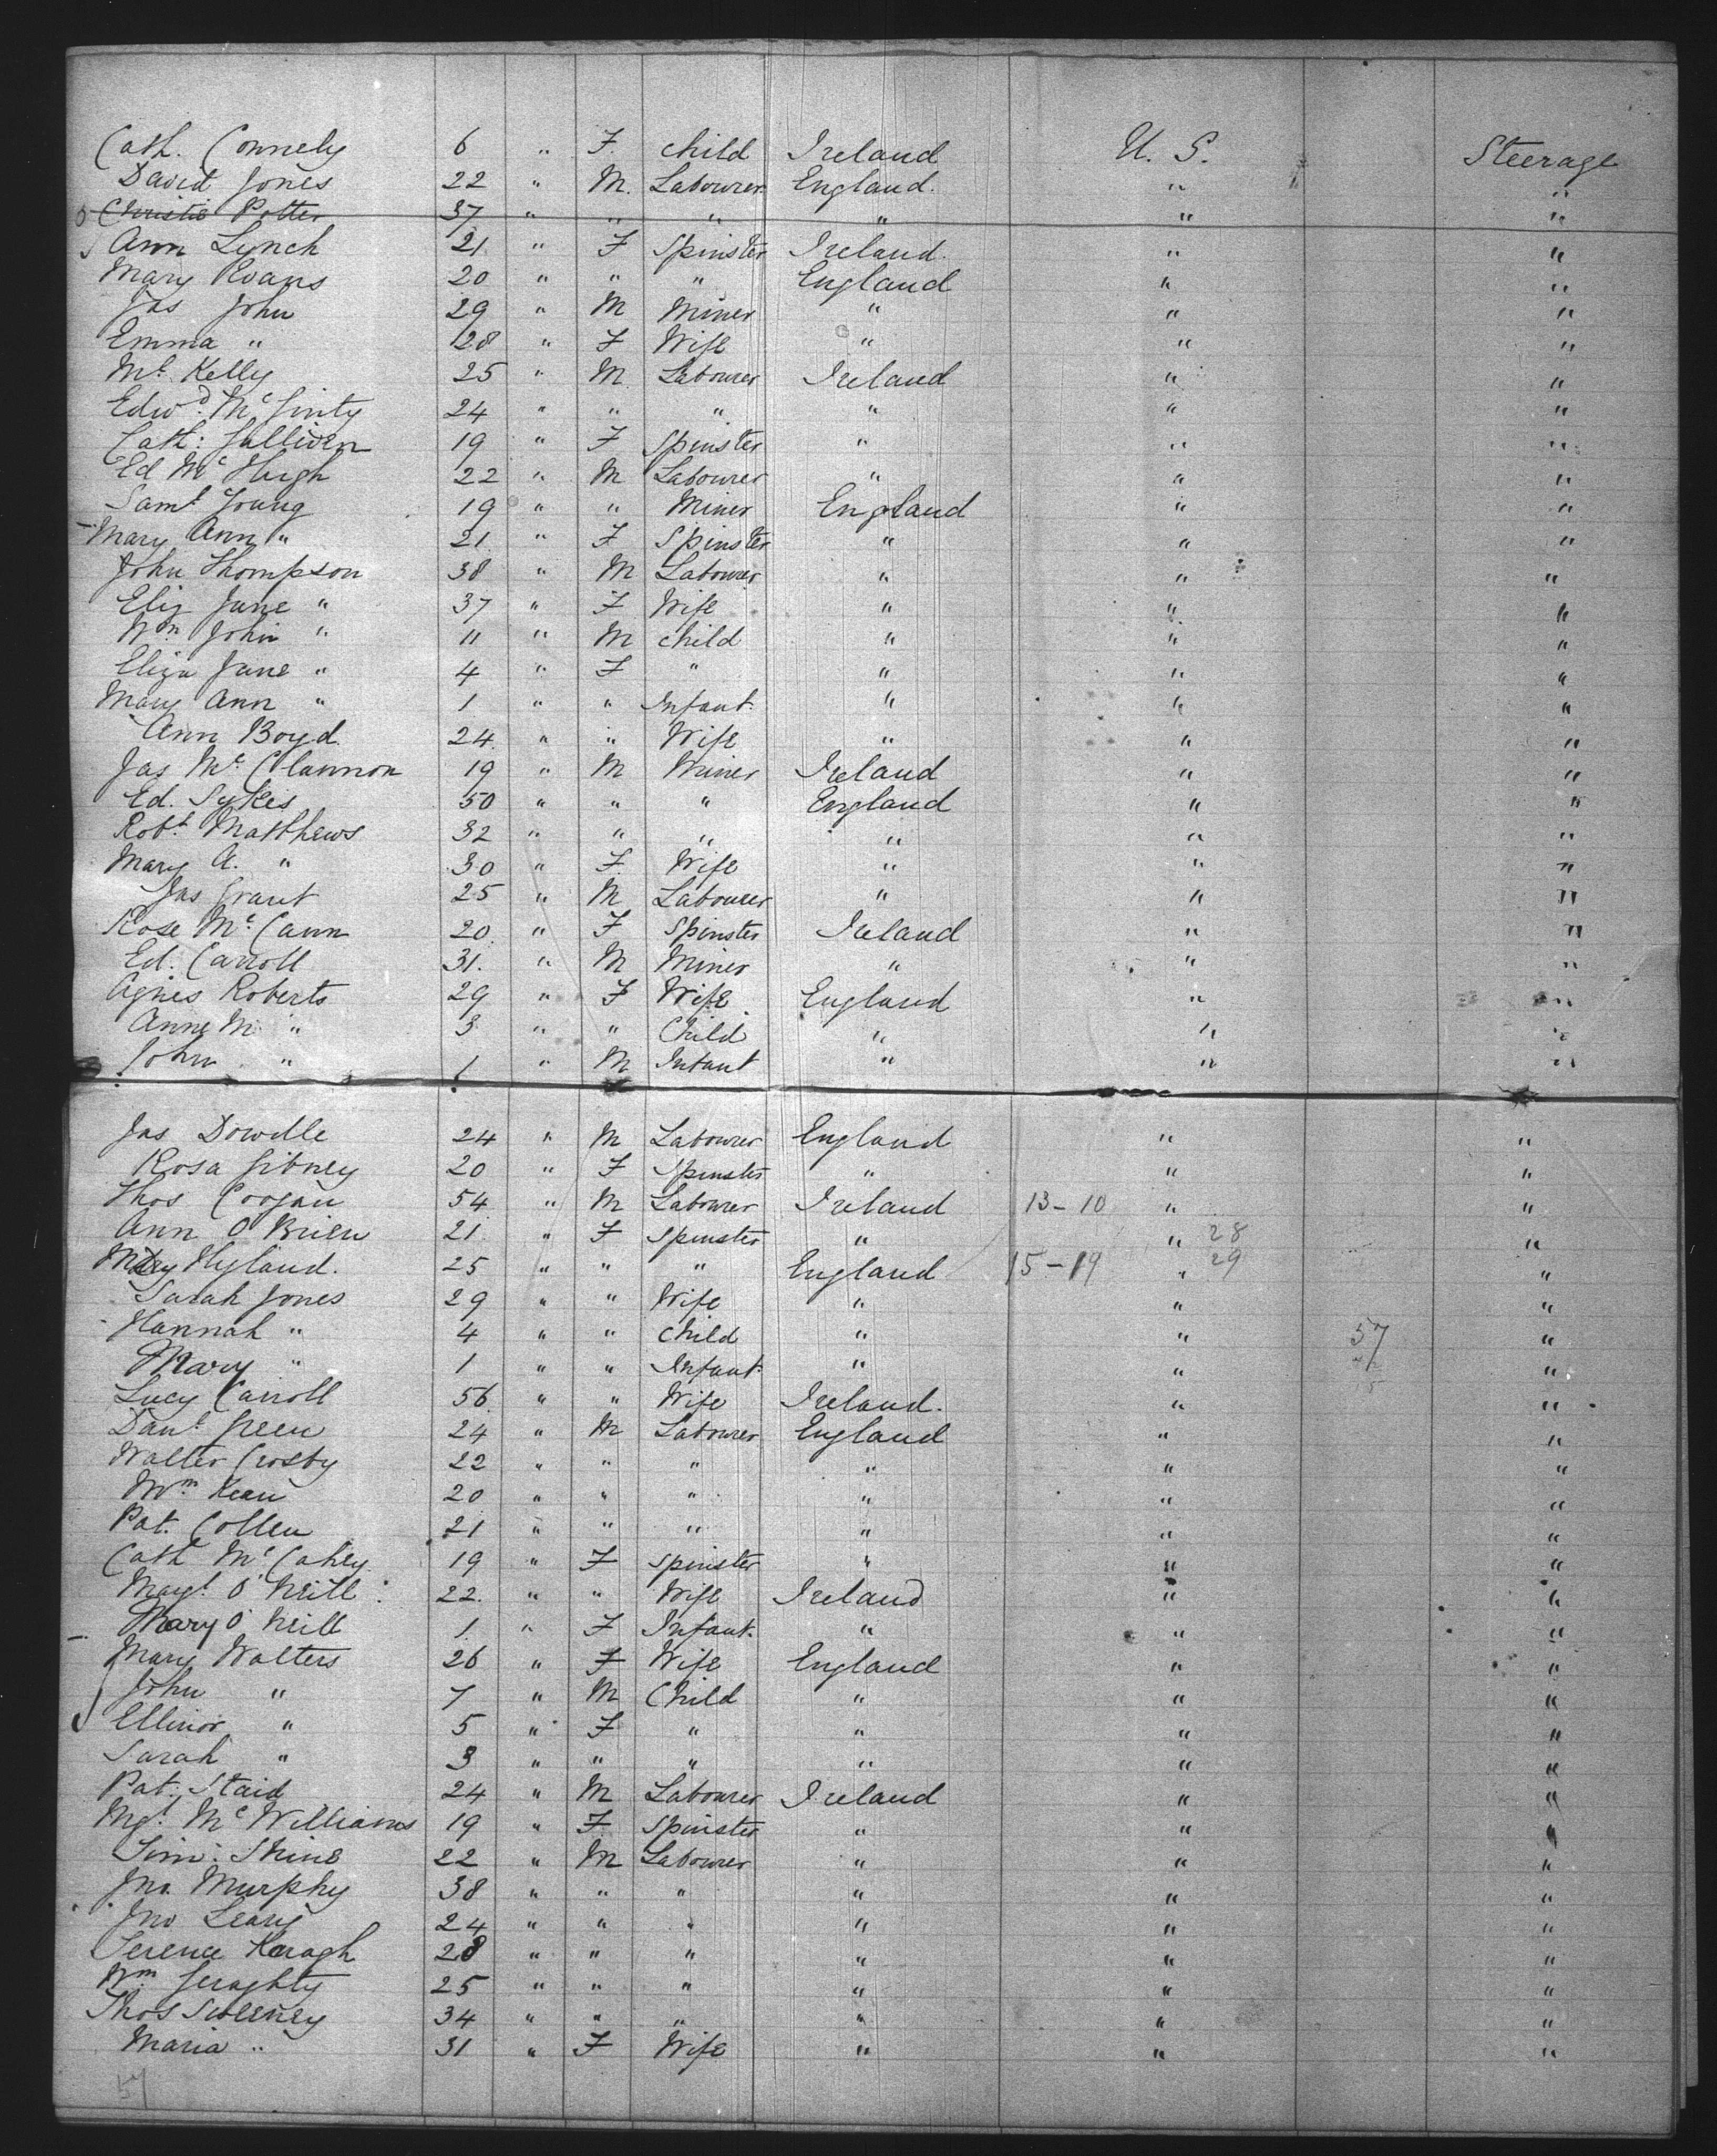 Cath. Connely 6 " F. child Ireland U. S. Steerage
David Jones 22 " M. Labourer England. " "
Christie Potter 37 " " " " " "
Ann Lynch 21 " F Spinster Ireland. " "
Mary Evans 20 " " " England " "
Jas John 29 " M Miner " " "
Emma " 28 " F Wife " " "
Ml Kelly 25 " M Labourer Ireland " "
Edwd. McGinty 24 " " " " " "
Cath: Gulliven 19 " F Spinster " " "
Ed McHugh 22 " M Labourer " " "
Saml Young 19 " " Miner England " "
Mary Ann " 21 " F Spinster " " "
John Thompson 38 " M Labourer " " "
Eliz Jane " 37 " F Wife " " "
Wm John " 11 " M child " " "
Eliza Jane " 4 " F " " " "
Mary Ann " 1 " " Infant. " " "
Ann Boyd 24. " " Wife " " "
Jas Mc Clannon 19 " M Miner Ireland " "
Ed. Sykes 50 " " " England " "
Robt Matthews 32 " " " " " "
Mary A. " 30 " F. Wife " " "
Jas Grant 25 " M Labourer " " "
Rose McCann 20 " F Spinster Ireland " "
Ed. Carroll 31. " M Miner " " "
Agnes Roberts 29 " F Wife England " "
Anne M. " 3 " " Child " " "
John " 1 " M Infant " " "
Jas Dowdle 24 " M Labourer England " "
Rosa Gibney 20 " F Spinster " " "
Thos Coogan 54 " M Labourer Ireland 13-10 " "
Ann O'Brien 21. " F Spinster " " 28 "
Mary Hyland. 25 " " " England 15-19 " 29 "
Sarah Jones 29 " " Wife " " "
Hannah " 4 " " child " " 57 "
Mary " 1 " " Infant. " " "
Lucy Carroll 56. " " Wife Ireland. " "
Danl Green 24 " M Labourer England " "
Walter Crosby 22 " " " " " "
Wm Kean 20 " " " " " "
Pat. Collen 21 " " " " " "
Cath McCahey 19 " F spinster " " "
Margt O'Neill 22. " " Wife Ireland " "
Mary O'Neill 1 " F Infant. " " "
Mary Walters 26 " F Wife England " "
John " 7 " M Child " " "
Ellinor " 5 " F " " " "
Sarah " 3 " " " " " "
Pat: Staid 24 " M Labourer Ireland " "
Mgt McWilliams 19 " F Spinster " " "
Tim: Shine 22 " M Labourer " " "
Jno. Murphy 38 " " " " " "
Jno Leary 24 " " " " " "
Terence Keragh 28 " " " " " "
Wm Geraghty 25 " " " " " "
Thos Sweeney 34 " " " " " "
Maria " 31 " F Wife " " "
57